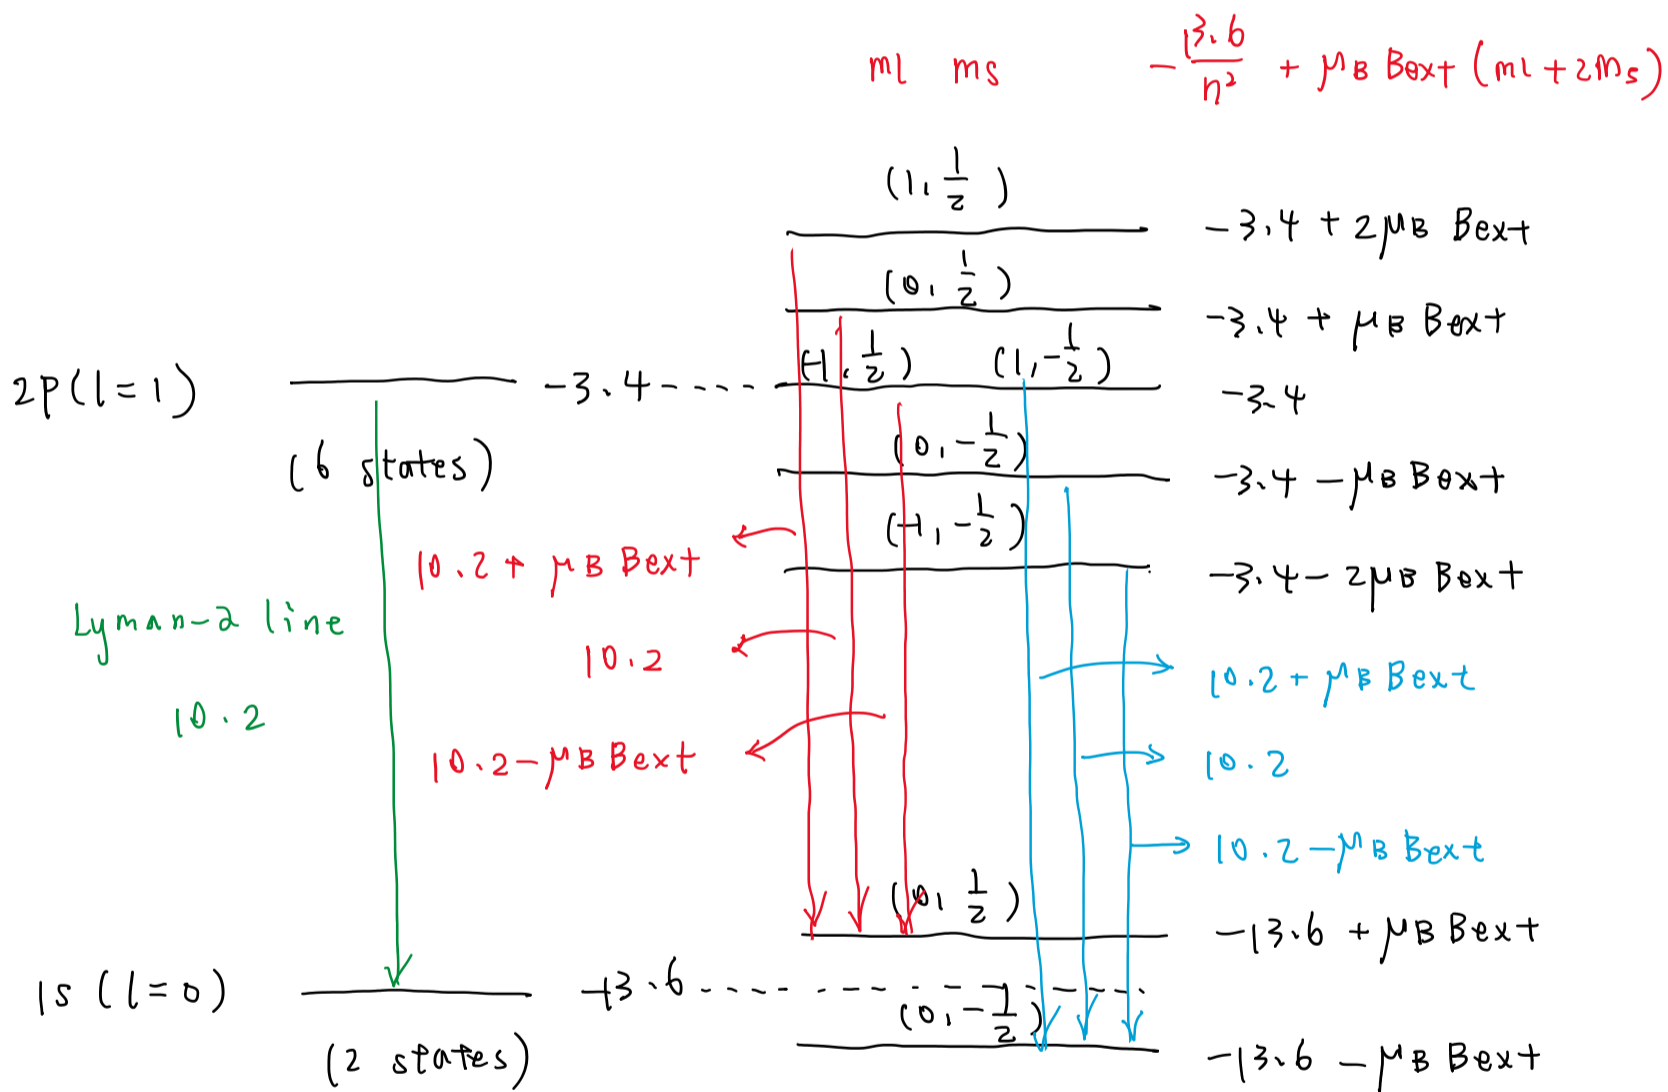 ml ms -13.6/n² + μB Bext (ml + 2ms)
(1, 1/2)
-3.4 + 2μB Bext
(0, 1/2)
-3.4 + μB Bext
(-1, 1/2) (1, -1/2)
2p (l=1) -3.4 -3.4
(0, -1/2)
(6 states) -3.4 - μB Bext
(-1, -1/2)
10.2 + μB Bext -3.4 - 2μB Bext
Lyman-2 line
10.2 10.2 + μB Bext
10.2
10.2 - μB Bext 10.2
10.2 - μB Bext
(0, 1/2)
-13.6 + μB Bext
1s (l=0) -13.6
(0, -1/2)
(2 states) -13.6 - μB Bext